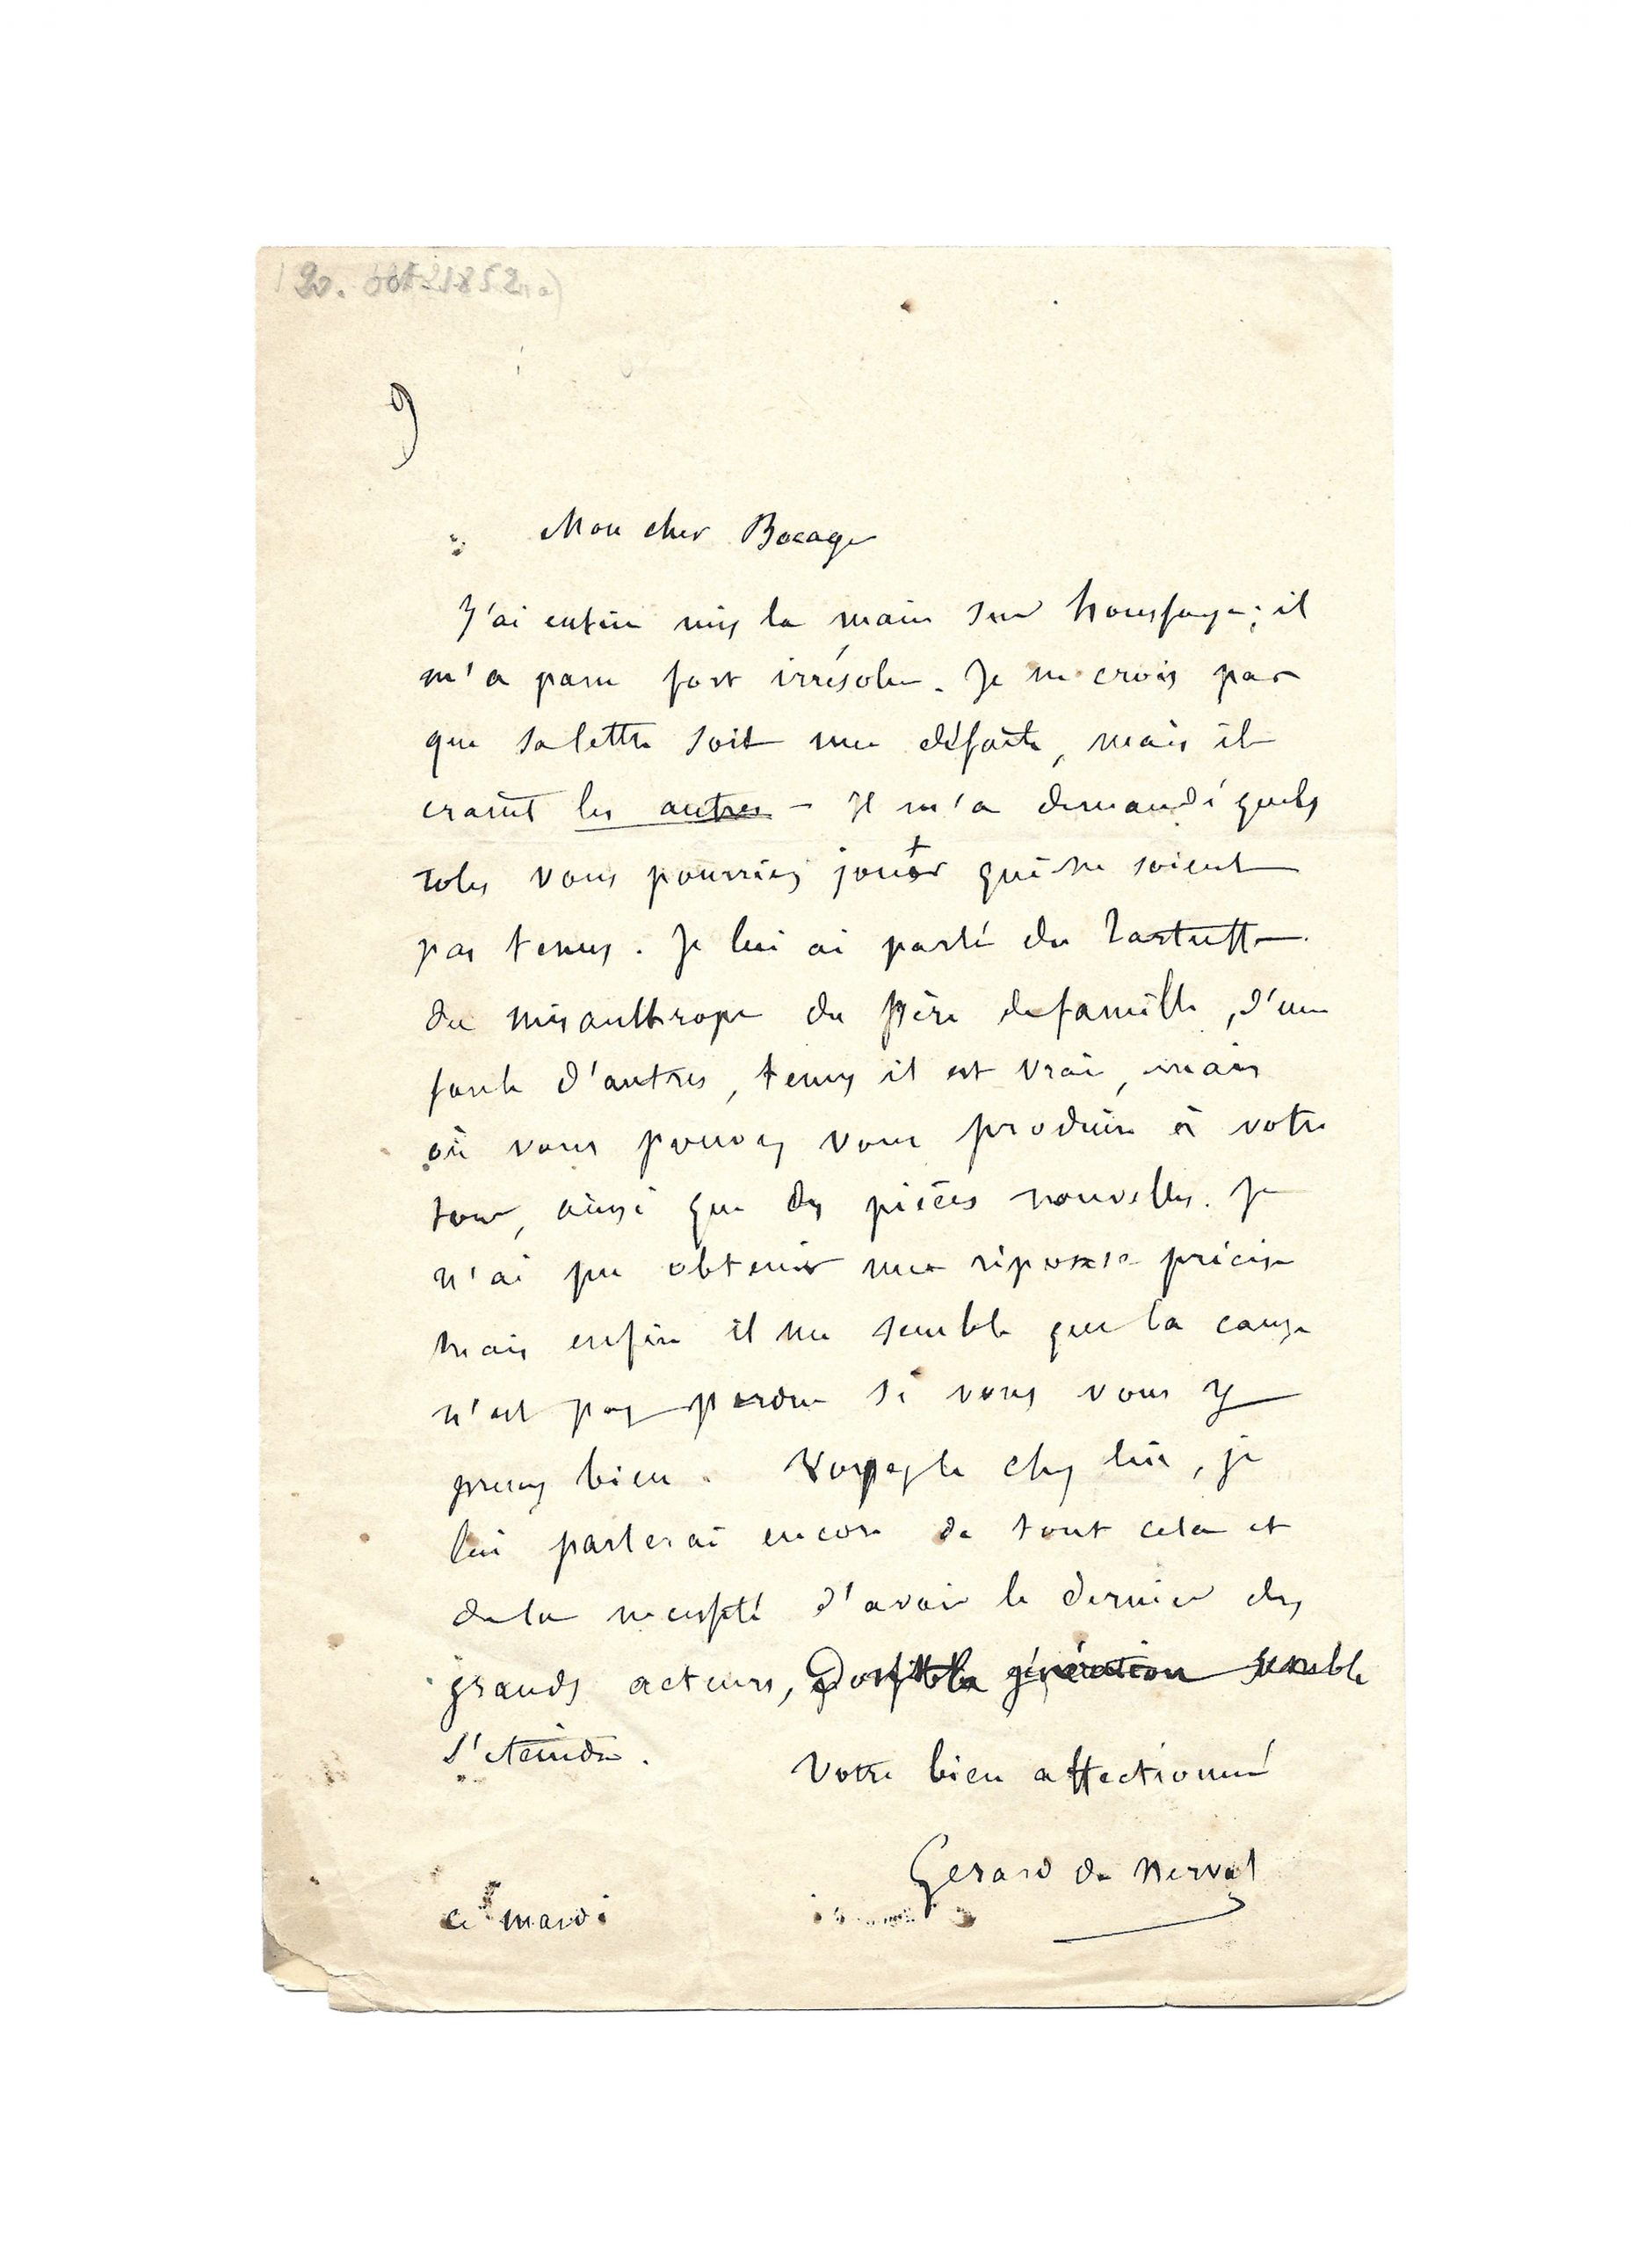 9
Mon cher Bocage
J'ai enfin mis la main sur houssaye; il
m'a paru fort irrésolu. Je ne crois pas
que sa lettre soit une défaite, mais il
craint les autres – Il m'a demandé quels
roles vous pourriez jouer qui ne soient
pas tenus. Je lui ai parlé du Tartuffe
du misanthrope du père de famille, d'une
foule d'autres, tenus il est vrai, mais
où vous pouvez vous produire à votre
tour, ainsi que des pièces nouvelles. Je
n'ai pu obtenir une réponse précise
mais enfin il me semble que la cause
n'est pas perdue si vous vous y
prenez bien. Voyez le chez lui, je
lui parlerai encore de tout cela et
de la necessité d'avoir le dernier des
grands acteurs, dont la génération semble
s'eteindre.
Votre bien affectionné
Gérard de Nerval
ce mardi